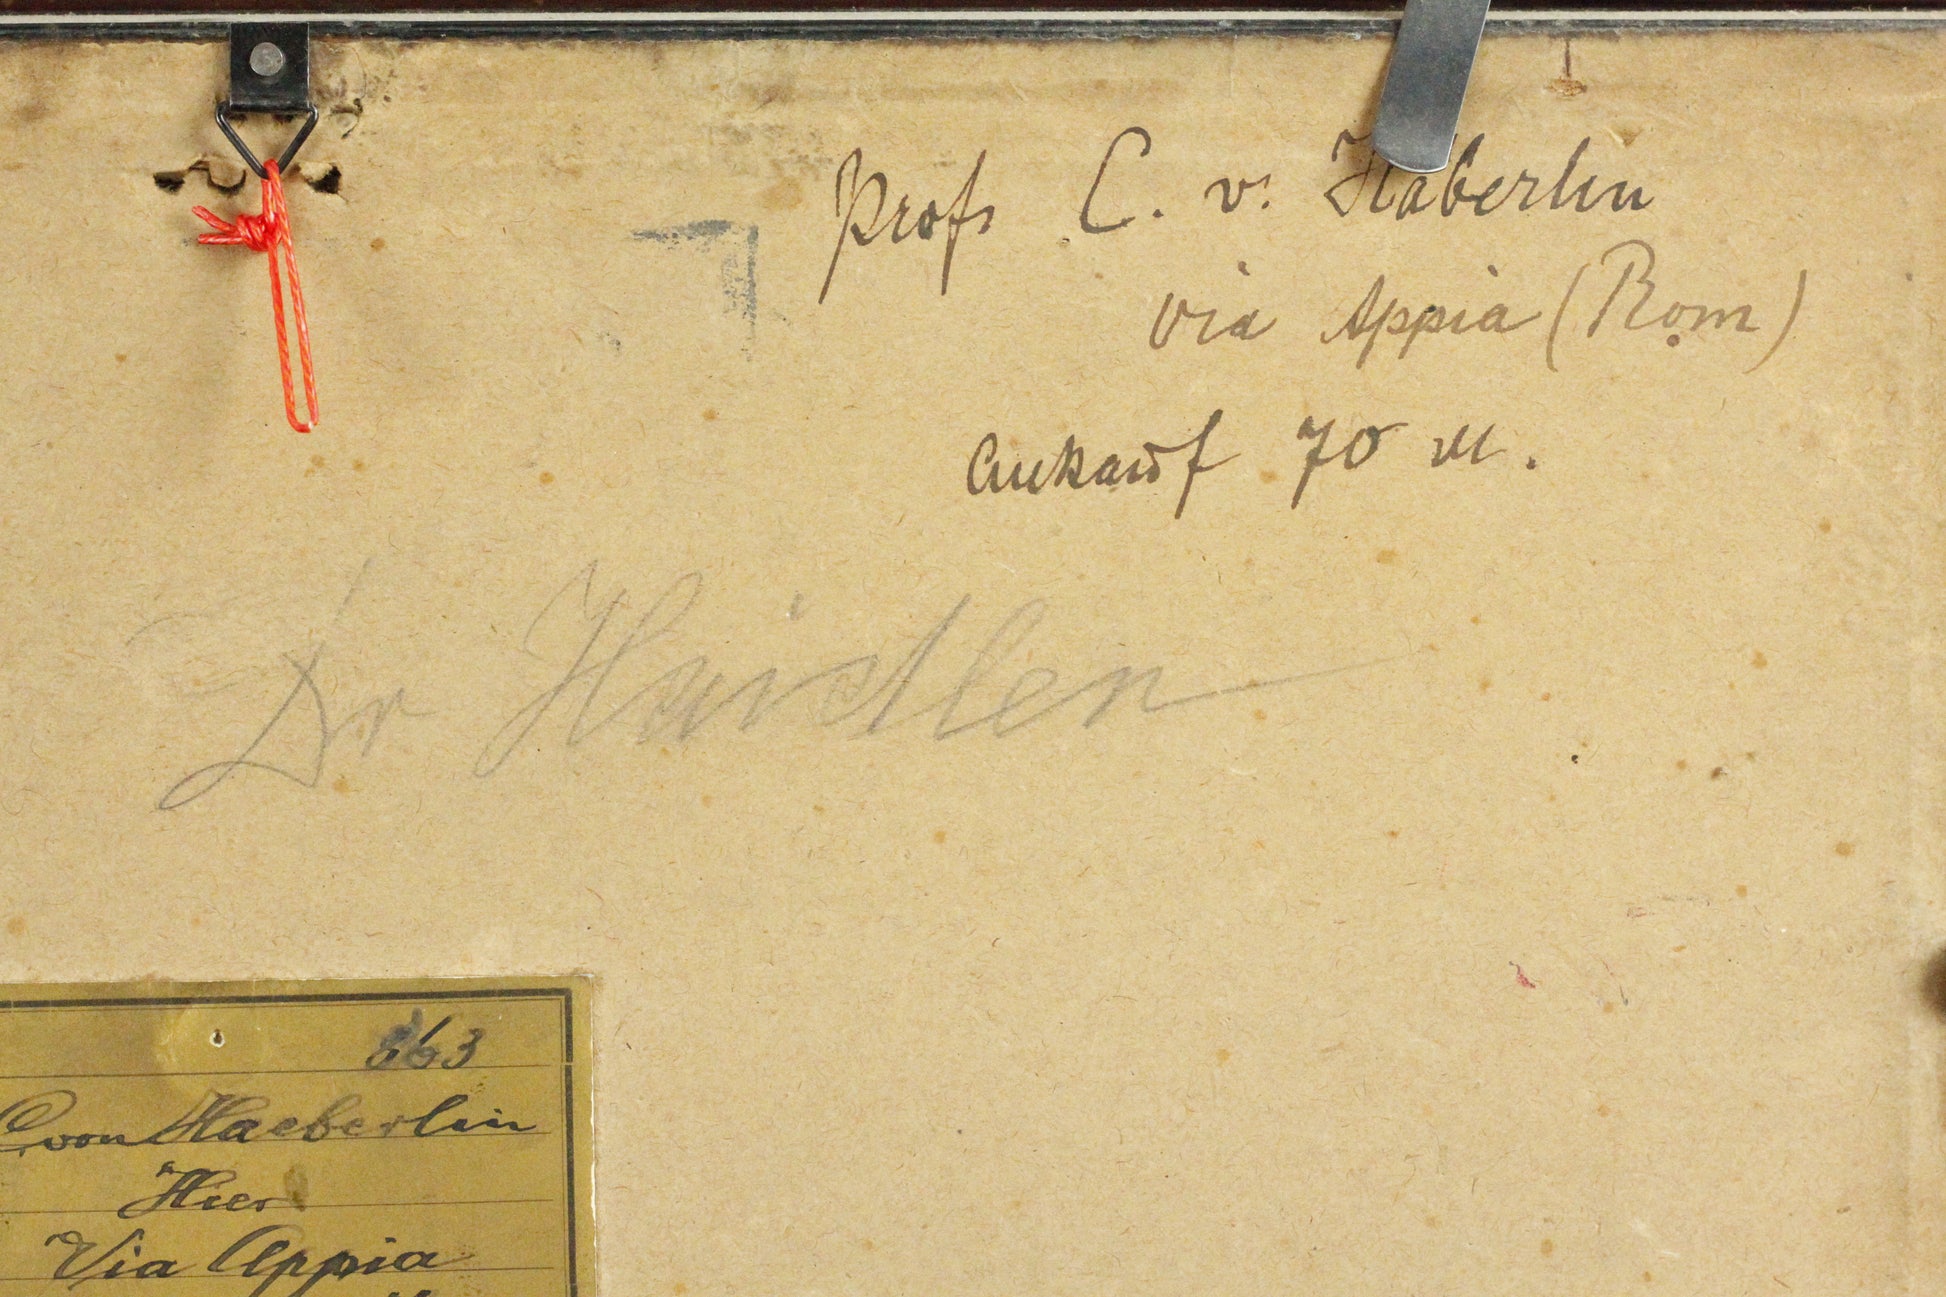 Prof. C. v. Häberlin
via Appia (Rom)
Ankauf 70 M.
Dr
663
C. von Haeberlin
Hier
Via Appia